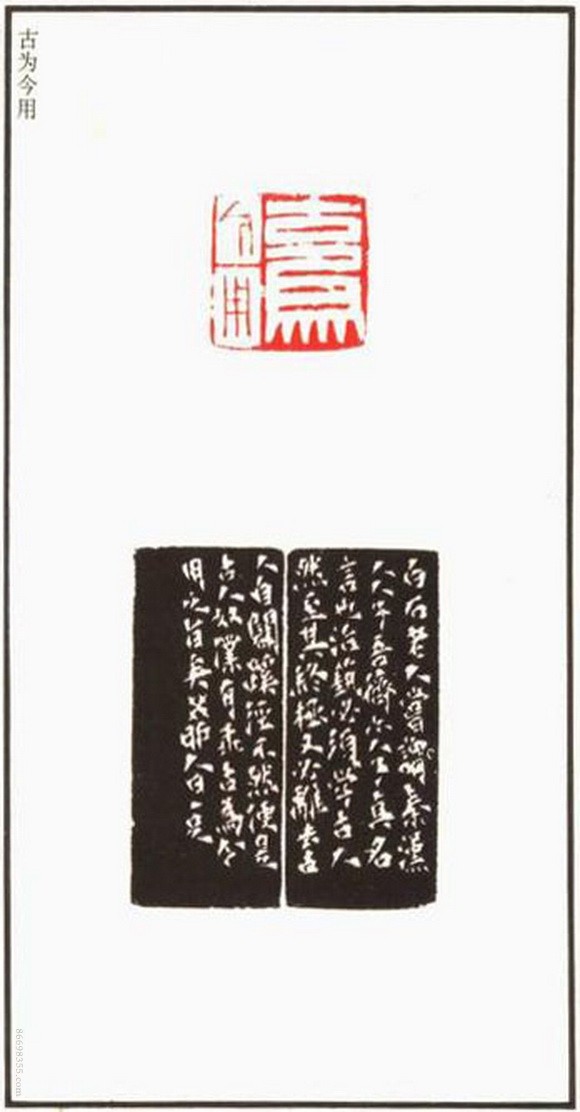 古为今用
古為今用
白石老人嘗謂秦漢
人人子吾儕亦人子真名
言也治藝必須學古人
然至其終極又必離去古
人自闢蹊徑不然便是
古人奴僕有乖古為今
用之旨矣
86698355.com